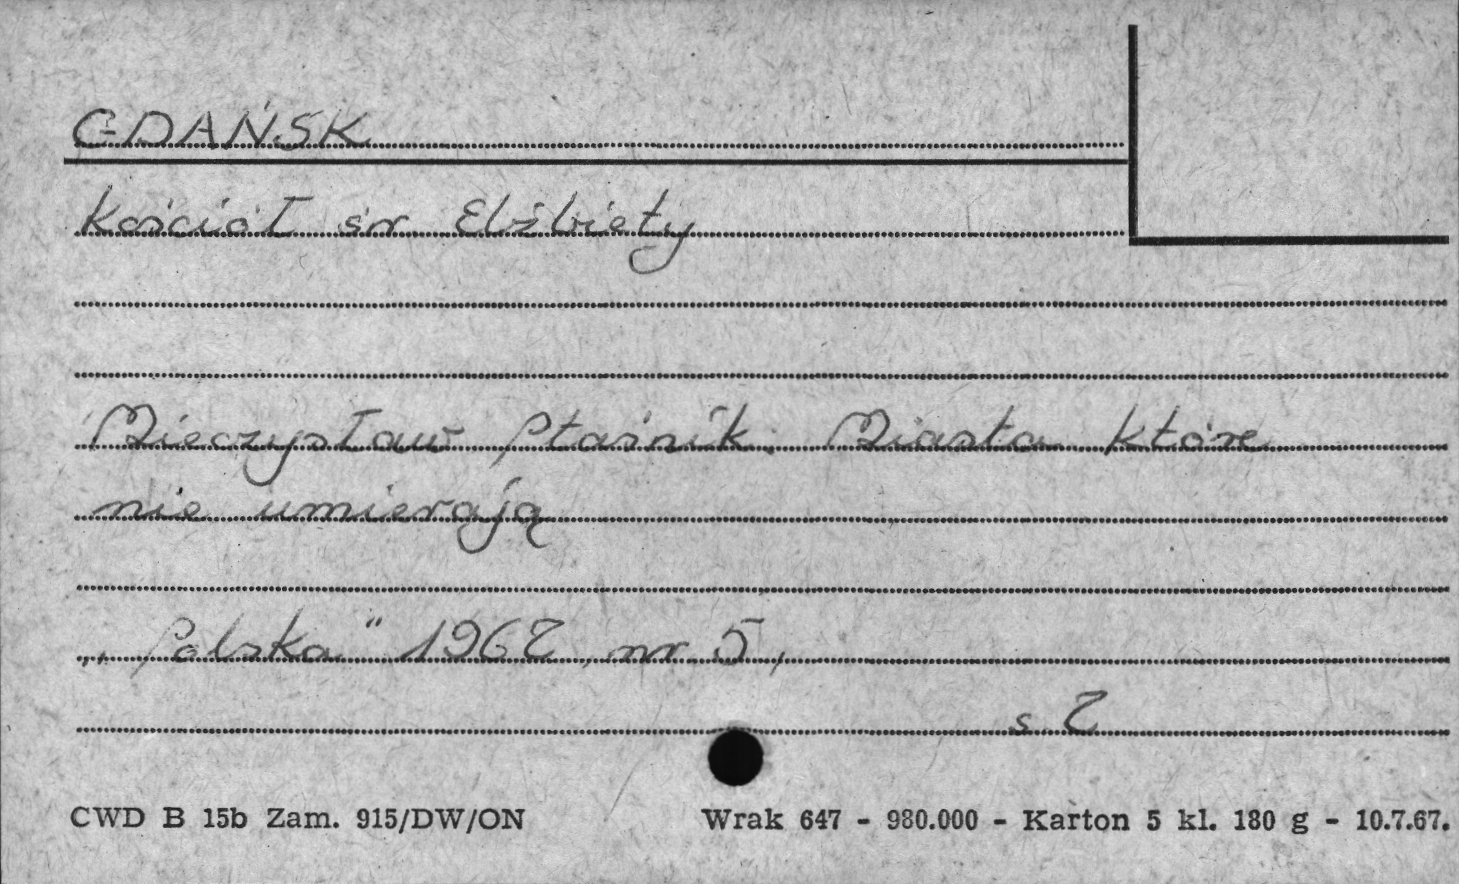 GDAŃSK
Kościół św Elżbiety
Mieczysław Ptaśnik. Miasta które
nie umierają
„Polska" 1962, nr 5,
s 2
CWD B 15b Zam. 915/DW/ON Wrak 647 - 980.000 - Karton 5 kl. 180 g - 10.7.67.